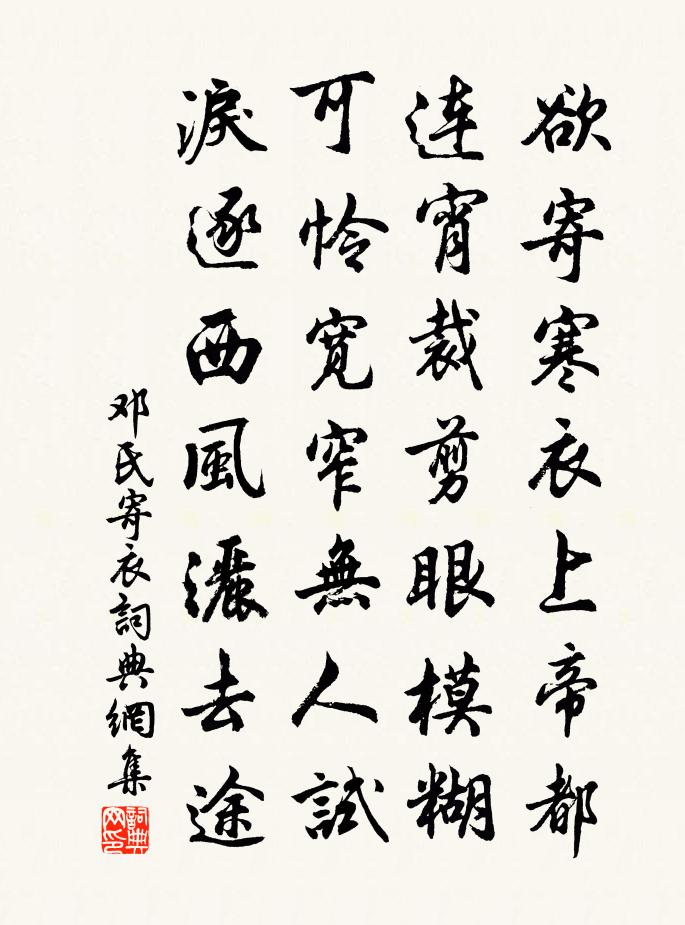 欲寄寒衣上帝都
連宵裁剪眼模糊
可怜寬窄無人試
淚逐西風灑去途
邓氏寄衣詞典網集
詞典网印